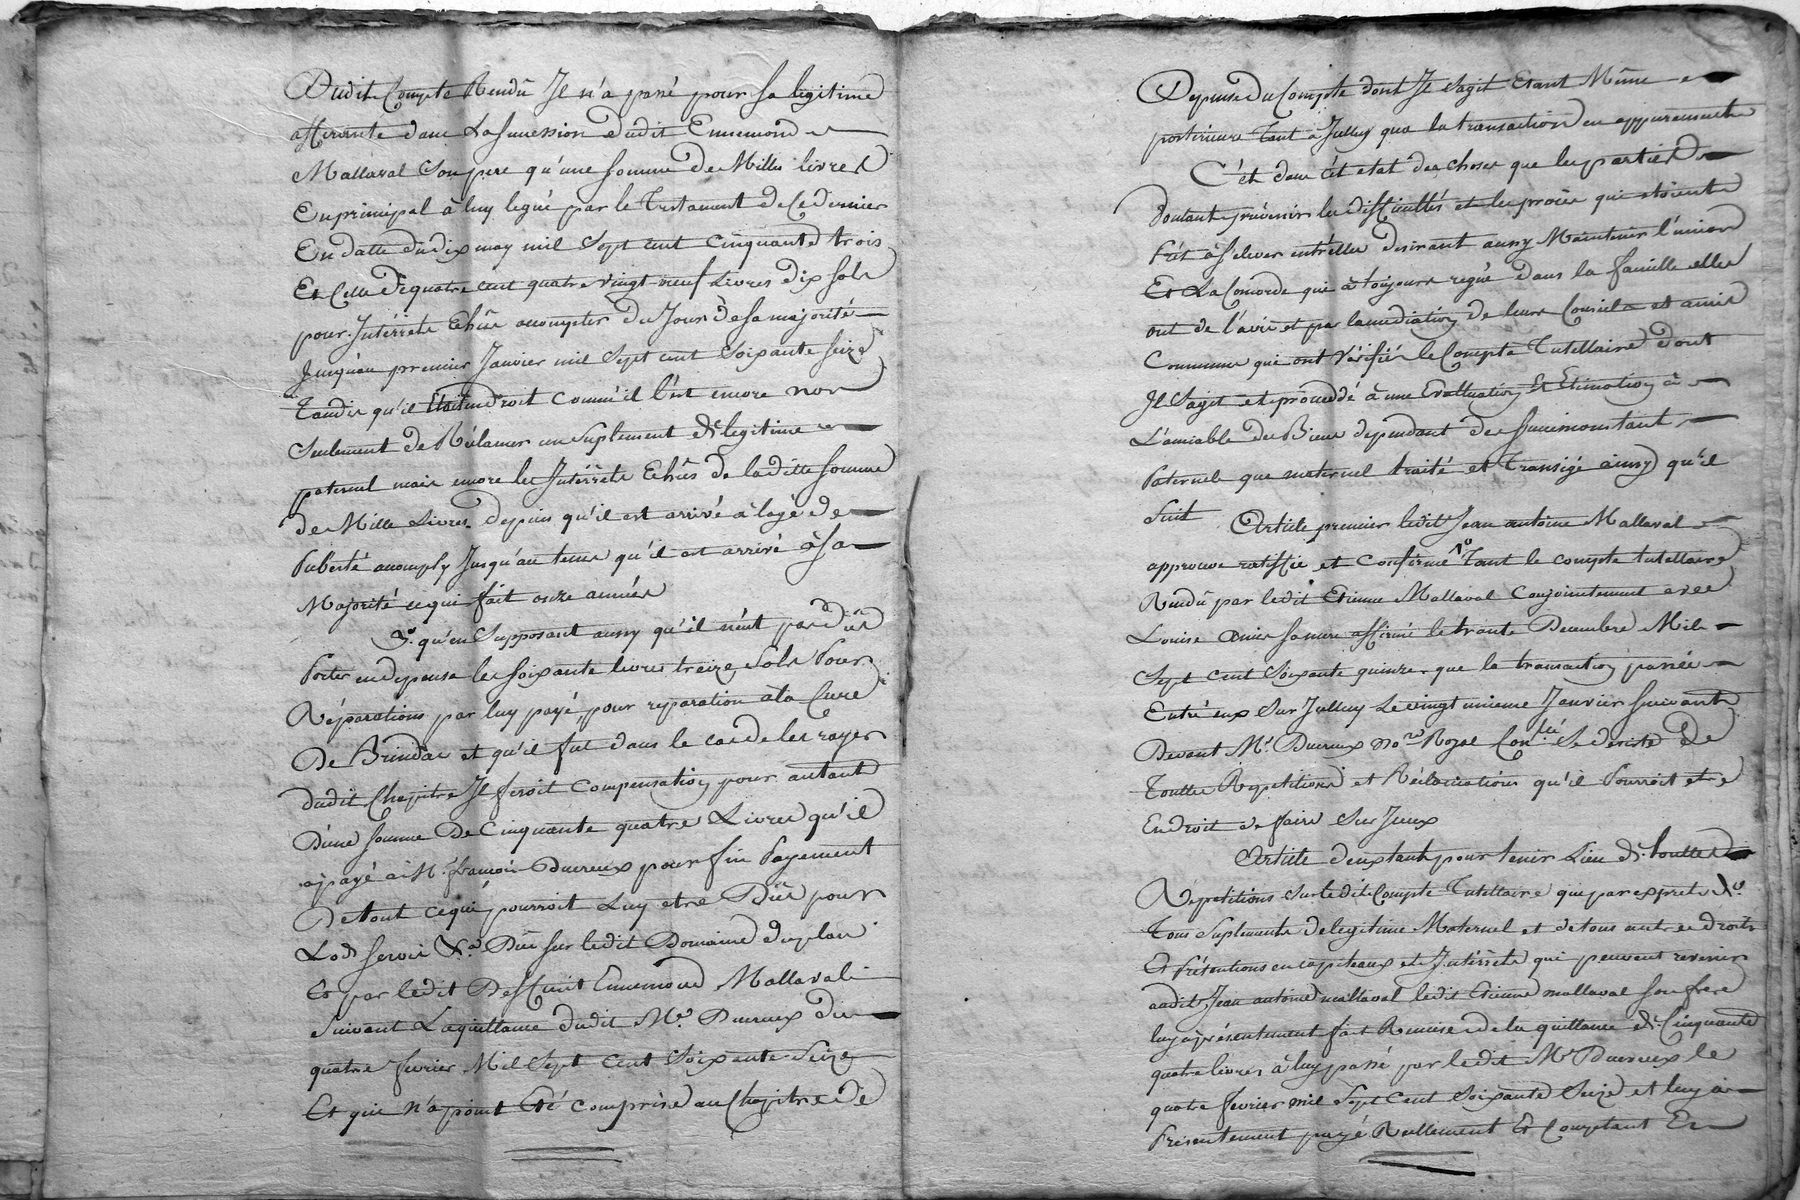 Dudit Compte Rendû Il n'a passé pour sa legitime
afferente dans La Succession dudit Ennemond
Mallaval Son pere qu'une somme de Mille livres
En principal à luy legué par le Testament de Ce dernier
En datte du dix may mil Sept cent cinquante trois
Et Celle de quatre cent quatre vingt neuf Livres dix sols
pour Intérrets Echûs acompter du Jour de sa majorité
Jusqu'au premier Janvier mil Sept cent Soixante Seize
Tandis qu'il Etoit En Droit comm'il l'est encore non
Seulement de Réclamer un Suplement de legitime
paternel mais encore les Intérrets Echûs de la ditte somme
de Mille Livres depuis qu'il est arrivé à l'age de
Puberté accomply Jusqu'au tems qu'il est arrivé à sa
Majorité ce qui fait onze années
3° qu'en Supposant aussy qu'il n'eut pas dûe
Porter en depense les soixante livres treize Sols Pour
Réparations par luy payé pour reparation à la Cure
De Brindas et qu'il fut dans le cas de les rayer
dudit Chapitre Il feroit compensation pour autant
D'une somme De Cinquante quatre Livres qu'il
a payé à Mr. francois Ducreux pour fin Payement
De tout ce qui pourroit Luy etre Dûe pour
Lods servis &a. Dûs sur ledit Domaine du plan
Et par ledit Deffunt Ennemond Mallaval
Suivant La quittance dudit Me. Ducreux du
quatre fevrier Mil Sept Cent Soixante Seize
Et qui n'a point Eté comprise au Chapitre De
Depense du Compte dont Il S'agit Etant Même
posterieure Tant à Julluy que la transaction en apparemment
C'est dans cét etat des choses que les parties
Voulant prévenir les difficultés et les procès qui étoient
Prêt à s'elever entr'elles desirant aussy Maintenir l'union
Et La Concorde qui à toujours regné dans la famille elles
ont de l'avis et par la mediation de leurs Conseils et amis
Communs qui ont Vérifié le Compte Tutellaire dont
Il S'agit et proceddé à une Evalluation Et Estimation à
L'amiable des Biens dependant des successions tant
Paternels que maternel traité et Transigé ainsy qu'il
Suit
Article premier ledit Jean antoine Mallaval
approuve ratiffie et Confirme 1° Tant le compte tutellaire
Rendû par ledit Etienne Mallaval Conjointement avec
Louise sa mere affirmé le trente Decembre Mil
Sept Cent Soixante quinze que la transaction passée
Entré eux Sur Julluy Le vingt unieme Janvier suivant
Devant Me. Ducreux Nore Royal Se desiste de
Touttes Repetitions et Réclamations qu'il Pourroit etre
En droit de faire Sur Iceux
Article deux tant pour tenir Lieu de touttes
Répetitions Sur ledit Compte Tutellaire que par exprès
Tous Suplements de legitime Maternel et de tous autres droits
Et Prétentions en capiteaux et Intérrets qui peuvent revenir
audit Jean antoine mallaval ledit Etienne mallaval son frere
luy à présentement fait Remise de la quittance de Cinquante
quatre livres à luy passé par ledit Me Ducreux le
quatre fevrier mil Sept Cent Soixante Seize et luy à
Présentement payé Reellement Et Comptant En